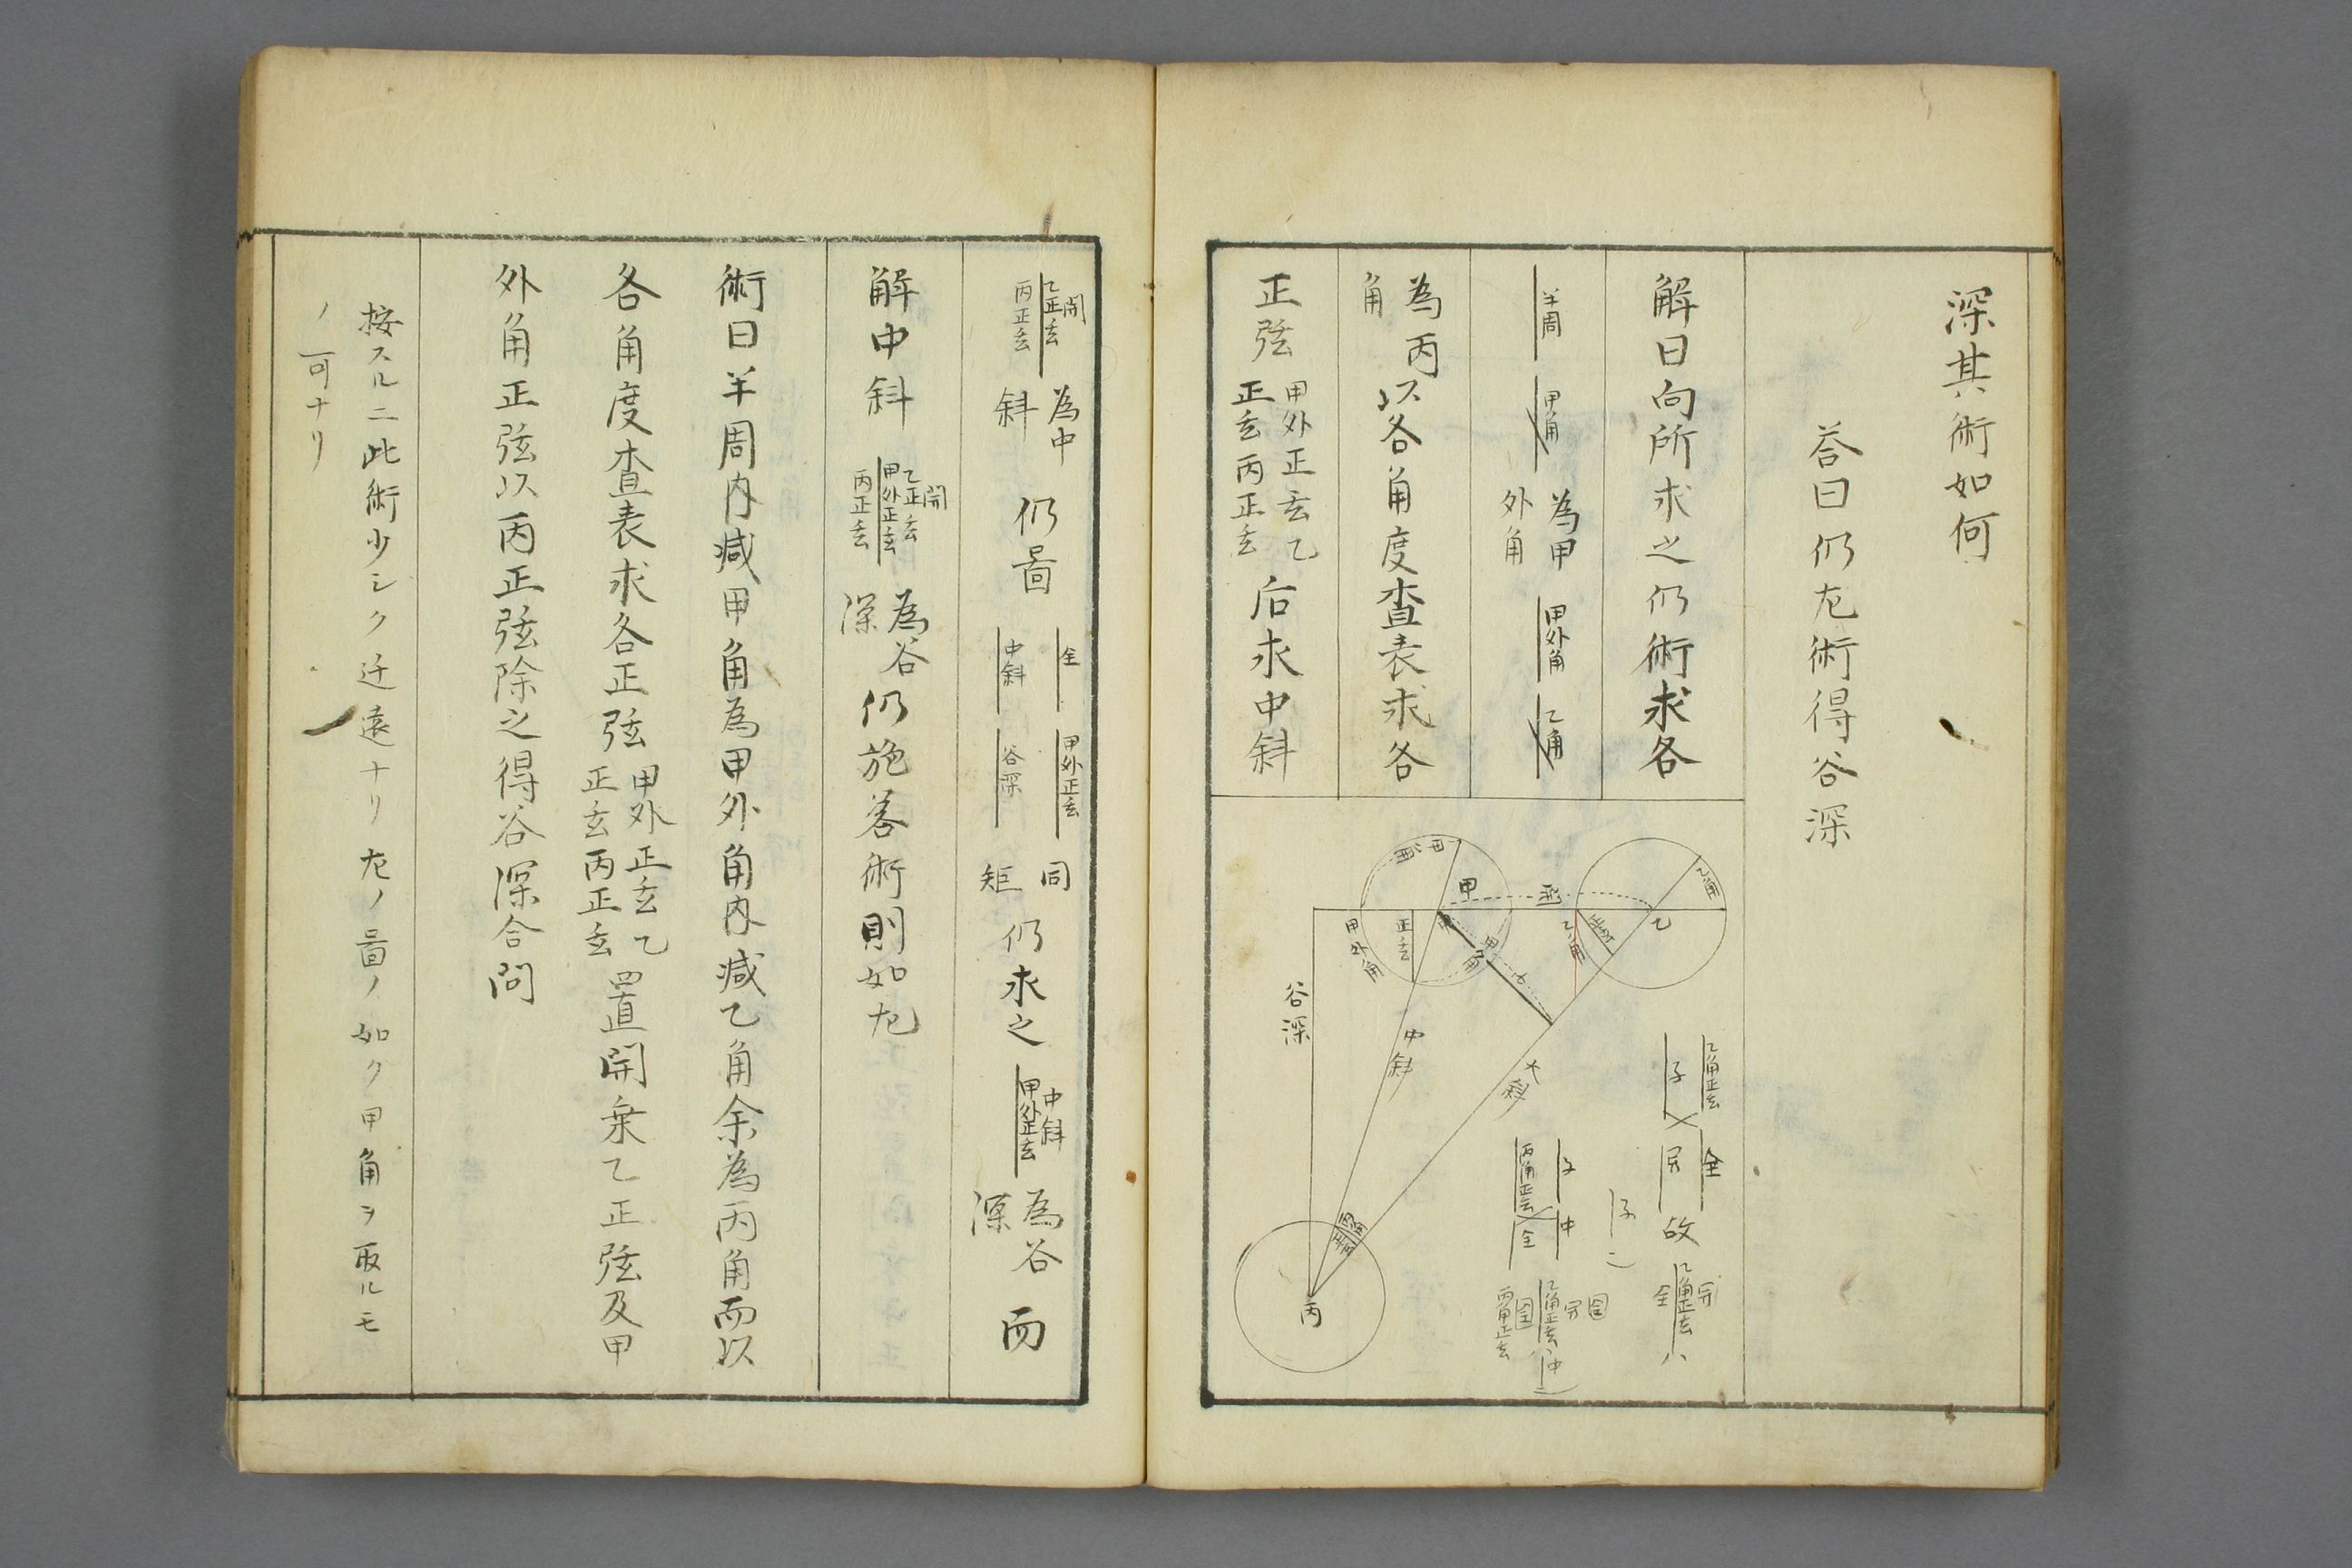 深其術如何
荅曰仍左術得谷深
解曰向所求之仍術求各
半周 甲角 為甲外角 甲外角 乙角
為丙角 以各角度査表求各
正弦 甲外正玄乙正玄丙正玄 后求中斜
乙角
甲外角
甲
開
乙
甲
乙角
正玄
正玄
甲外角
甲角
子
谷深
中斜
大斜
丙
丙角正玄
乙角正玄
子 開 全 故
乙角正玄 開 全 ハ
子
子 中
丙角正玄 全
乙角正玄 開 全 ハ中
丙角正玄 全
開 乙正玄 丙正玄 為中斜 仍啚 全 中斜 甲外正玄 谷深 同矩 仍求之 中斜 甲外正玄 為谷深 而
解中斜 開 乙正玄 甲外正玄 丙正玄 為谷深 仍施荅術則如左
術曰半周内減甲角為甲外角内減乙角余為丙角而以
各角度査表求各正弦 甲外正玄乙正玄丙正玄 置開乗乙正弦及甲
外角正弦以丙正弦除之得谷深合問
按スルニ此術少シク迂遠ナリ左ノ啚ノ如ク甲角ヲ取ルモ
ノ可ナリ